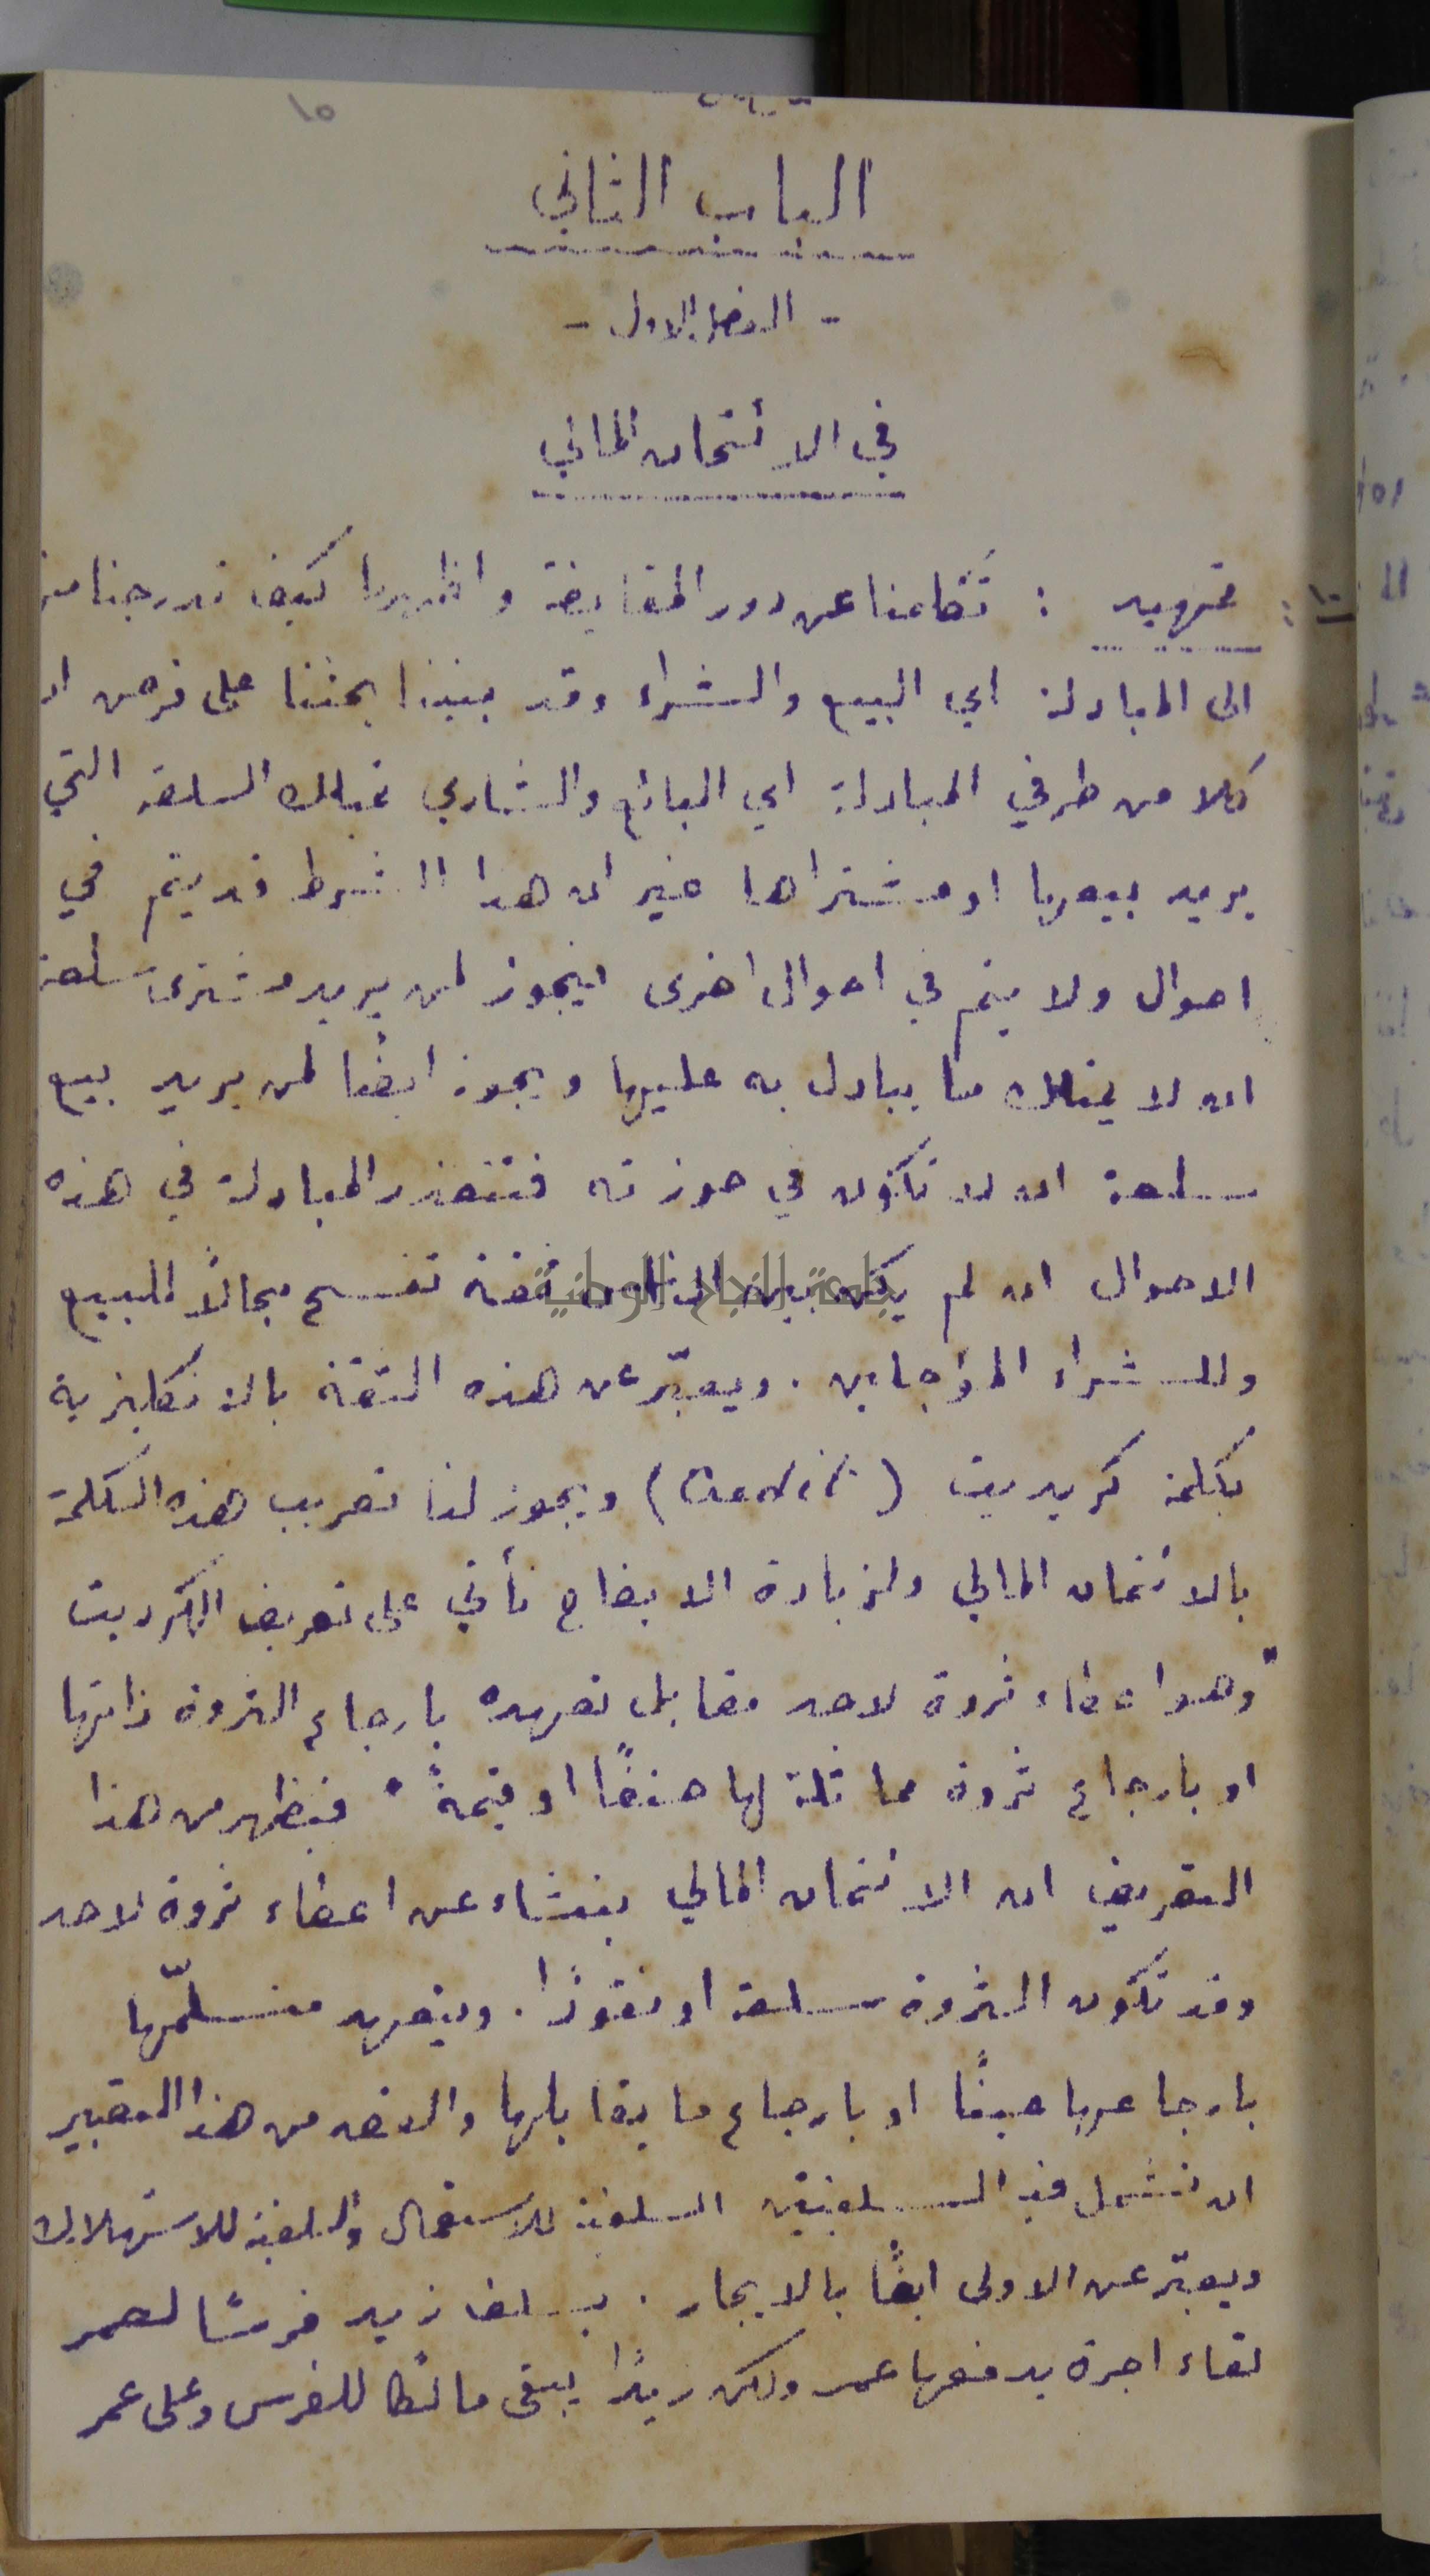 ١٥
الباب الثاني
- الفصل الاول -
في الائتمان المالي
تمهيد : تكلمنا عن دور المقايضة واظهرنا كيف تدرجنا منه
الى المبادلة اي البيع والشراء وقد بنينا بحثنا على فرض ان
كلا من طرفي المبادلة اي البائع والشاري تملك السلعة التي
يريد بيعها او مشتراها غير ان هذا الشرط قد يتم في
احوال ولا يتم في احوال اخرى فيجوز لمن يريد مشترى سلعة
ان لا يملك ما يبادل به عليها ويجوز ايضًا لمن يريد بيع
سلعة ان لا تكون في حوزته فتتعذر المبادلة في هذه
الاحوال ان لم يكن بين الناس ثقة تفسح مجالاً للبيع
جامعة النجاح الوطنية
وللشراء المؤجلين . ويعبّر عن هذه الثقة بالانكليزية
بكلمة كريديت (Credit) ويجوز لنا تعريب هذه الكلمة
بالائتمان المالي ولزيادة الايضاح نأتي على تعريف الكرديت
" وهو اعطاء ثروة لاحد مقابل تعهده بارجاع الثروة ذاتها
او بارجاع ثروة مماثلة لها صنفًا او قيمةً " فيظهر من هذا
التعريف ان الائتمان المالي ينشاء عن اعطاء ثروة لاحد
وقد تكون الثروة سلعة او نقودًا . ويتعهد متسلّمها
بارجاعها عينًا او بارجاع ما يقابلها والقصد من هذا التعبير
ان نشمل فيه السلفتين السلفة للاستعمال والسلفة للاستهلاك
ويعبّر عن الاولى ايضًا بالايجار . يسلف زيد فرسًا لعمر
لقاء اجرة يدفعها عمر ولكن زيدًا يبقى مالكًا للفرس وعلى عمر